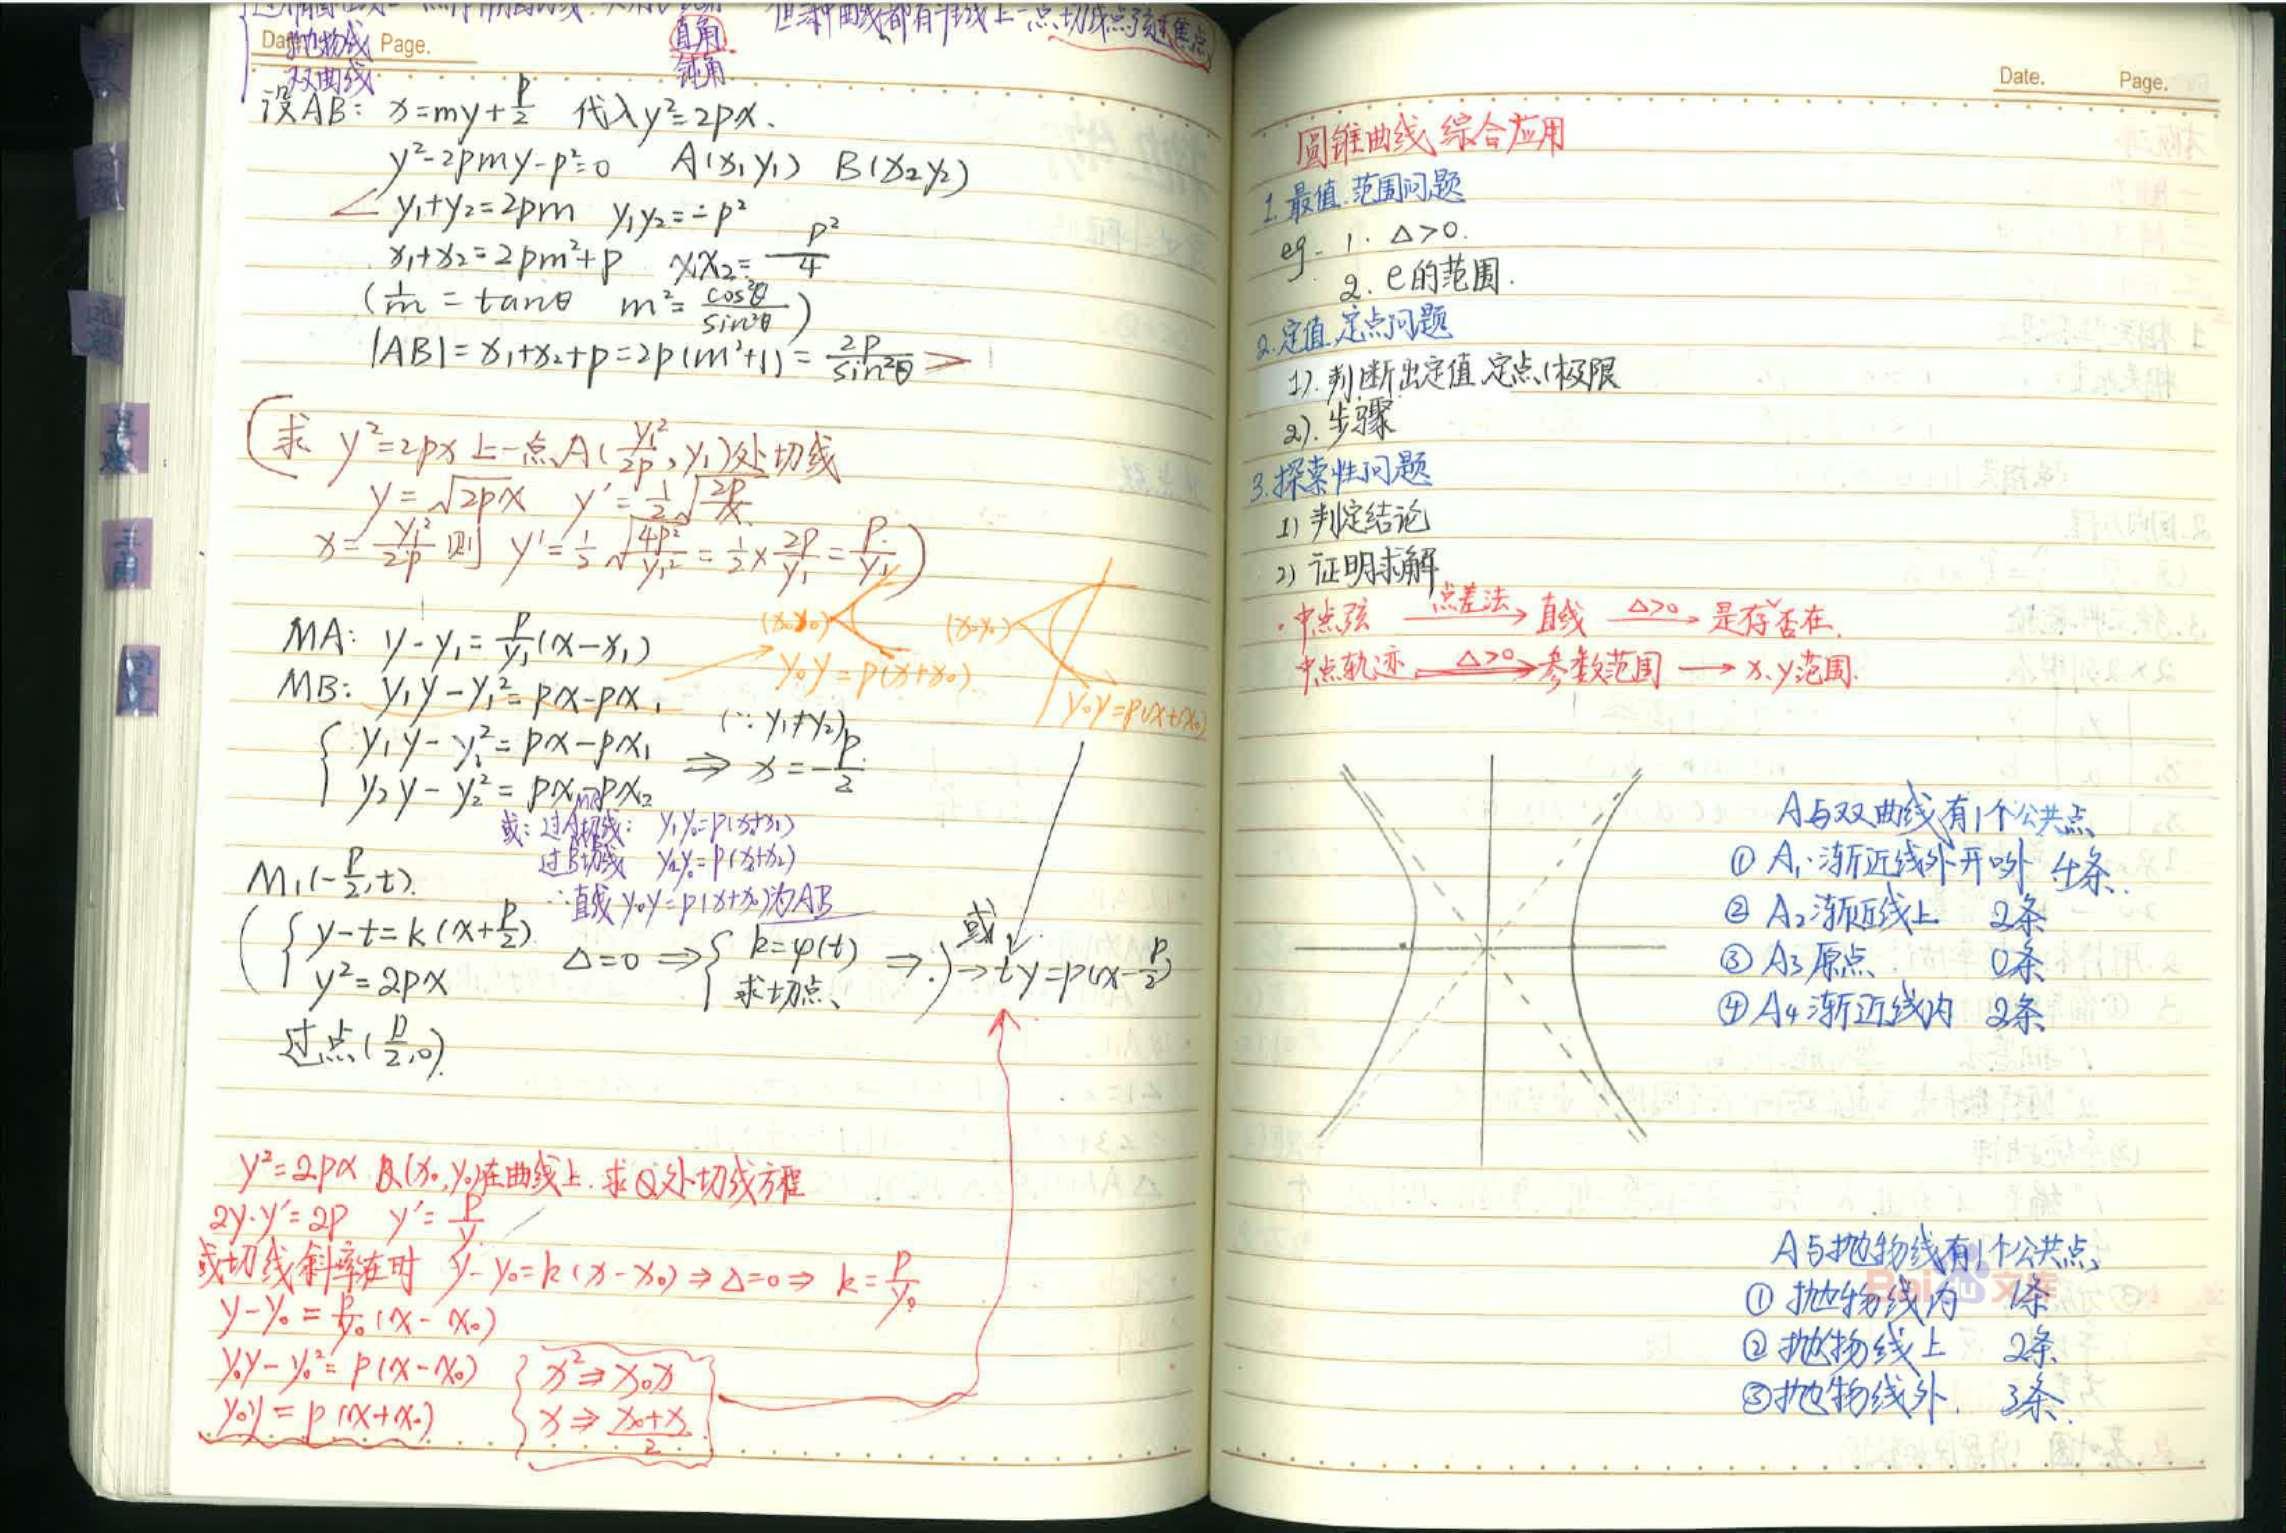 但三种曲线都有准线上一点切线点弦过焦点
抛物线
直角
双曲线
钝角
Date. Page.
设AB: x=my+p/2 代入y²=2px.
y²-2pmy-p²=0 A(x₁y₁) B(x₂y₂)
y₁+y₂=2pm y₁y₂=-p²
x₁+x₂=2pm²+p x₁x₂=p²/4
(1/m=tanθ m²=cos²θ/sin²θ)
|AB|=x₁+x₂+p=2p(m²+1)=2p/sin²θ
(求 y²=2px上一点A(y₁²/2p, y₁)处切线
y=√2px y'=1/2√2p/x
x=y₁²/2p 则 y'=1/2√4p²/y₁²=1/2×2p/y₁=p/y₁)
MA: y-y₁=p/y₁(x-x₁)
MB: y₁y-y₁²=px-px₁
(x₀y₀)
y₀y=p(x+x₀)
(x₀y₀)
y₀y=p(x+x₀)
y₁y-y₁²=px-px₁
y₂y-y₂²=px-px₂
(∵y₁≠y₂)
⇒ x=-p/2
或: 过A切线: y₁y₀=p(x₀+x₁)
过B切线 y₂y₀=p(x₀+x₂)
∴直线y₀y=p(x+x₀)为AB
M₁(-p/2,t).
y-t=k(x+p/2)
y²=2px
Δ=0 ⇒ k=φ(t)
求切点、
⇒.)→ty=p(x-p/2)
或
过点(p/2,0)
y²=2px Q(x₀,y₀)在曲线上.求Q处切线方程
2y·y'=2p y'=p/y
或切线斜率在时 y-y₀=k(x-x₀)⇒Δ=0⇒ k=p/y₀
y-y₀=p/y₀(x-x₀)
y₀y-y₀²=p(x-x₀)
y₀y=p(x+x₀)
x²⇒x₀x
x⇒x₀+x/2
Date. Page.
圆锥曲线综合应用
1.最值.范围问题
eg- 1. Δ>0.
2. e的范围.
2.定值.定点问题
1).判断出定值.定点(极限
2).步骤
3.探索性问题
1) 判定结论
2) 证明求解
·中点弦 点差法→ 直线 Δ>0→ 是存否在.
中点轨迹 Δ>0⇒参数范围→x.y范围.
A与双曲线有1个公共点
① A₁.渐近线外开口外 4条.
② A₂渐近线上 2条
③ A₃原点 0条
④ A₄渐近线内 2条
A与抛物线有1个公共点
① 抛物线内 1条
② 抛物线上 2条
③抛物线外. 3条.
Baidu文库